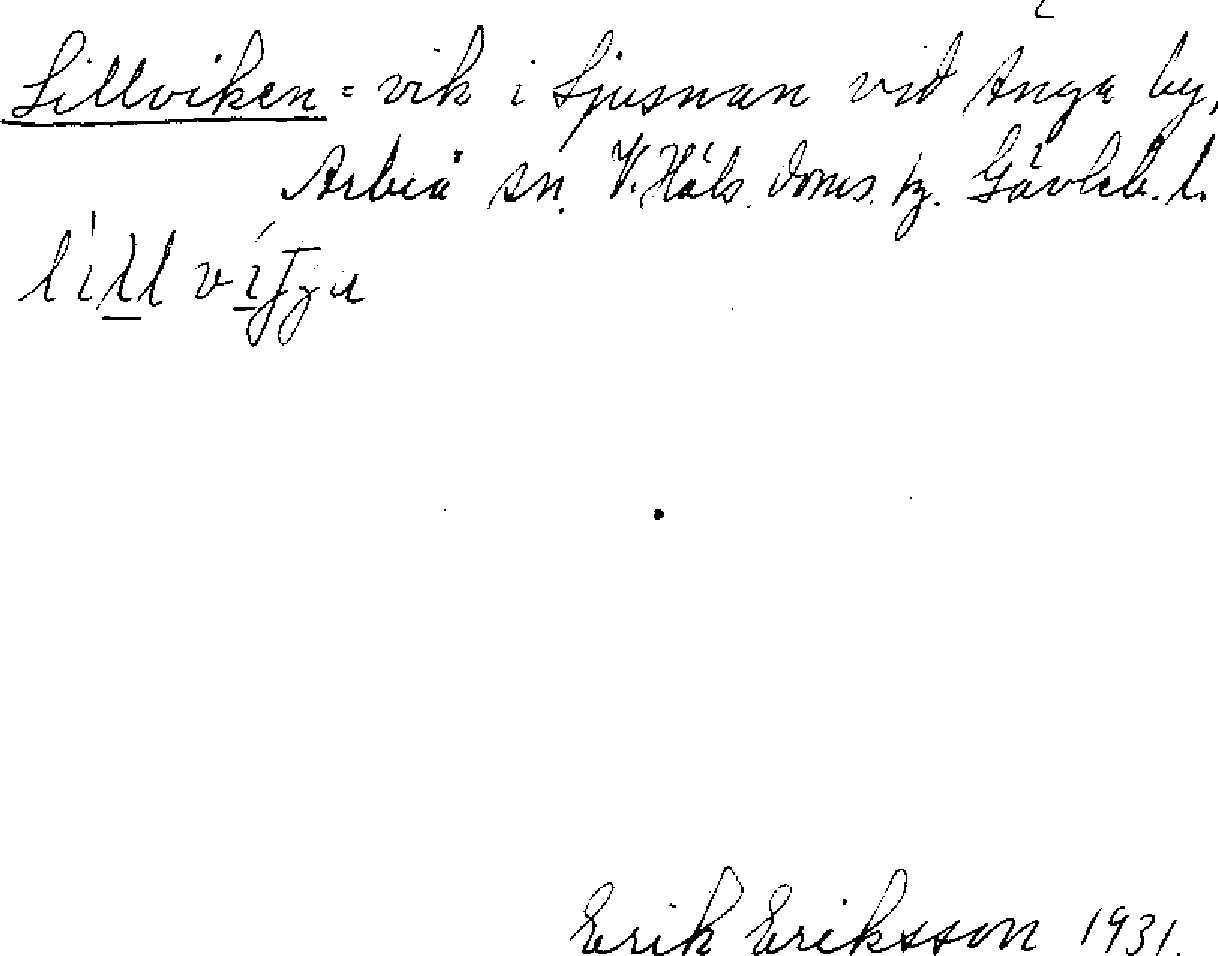 Lillviken = vik i Ljusnan vid Änga by,
Arbrå sn. V. Häls. doms. fg. Gävleb. l.
Erik Eriksson 1931.